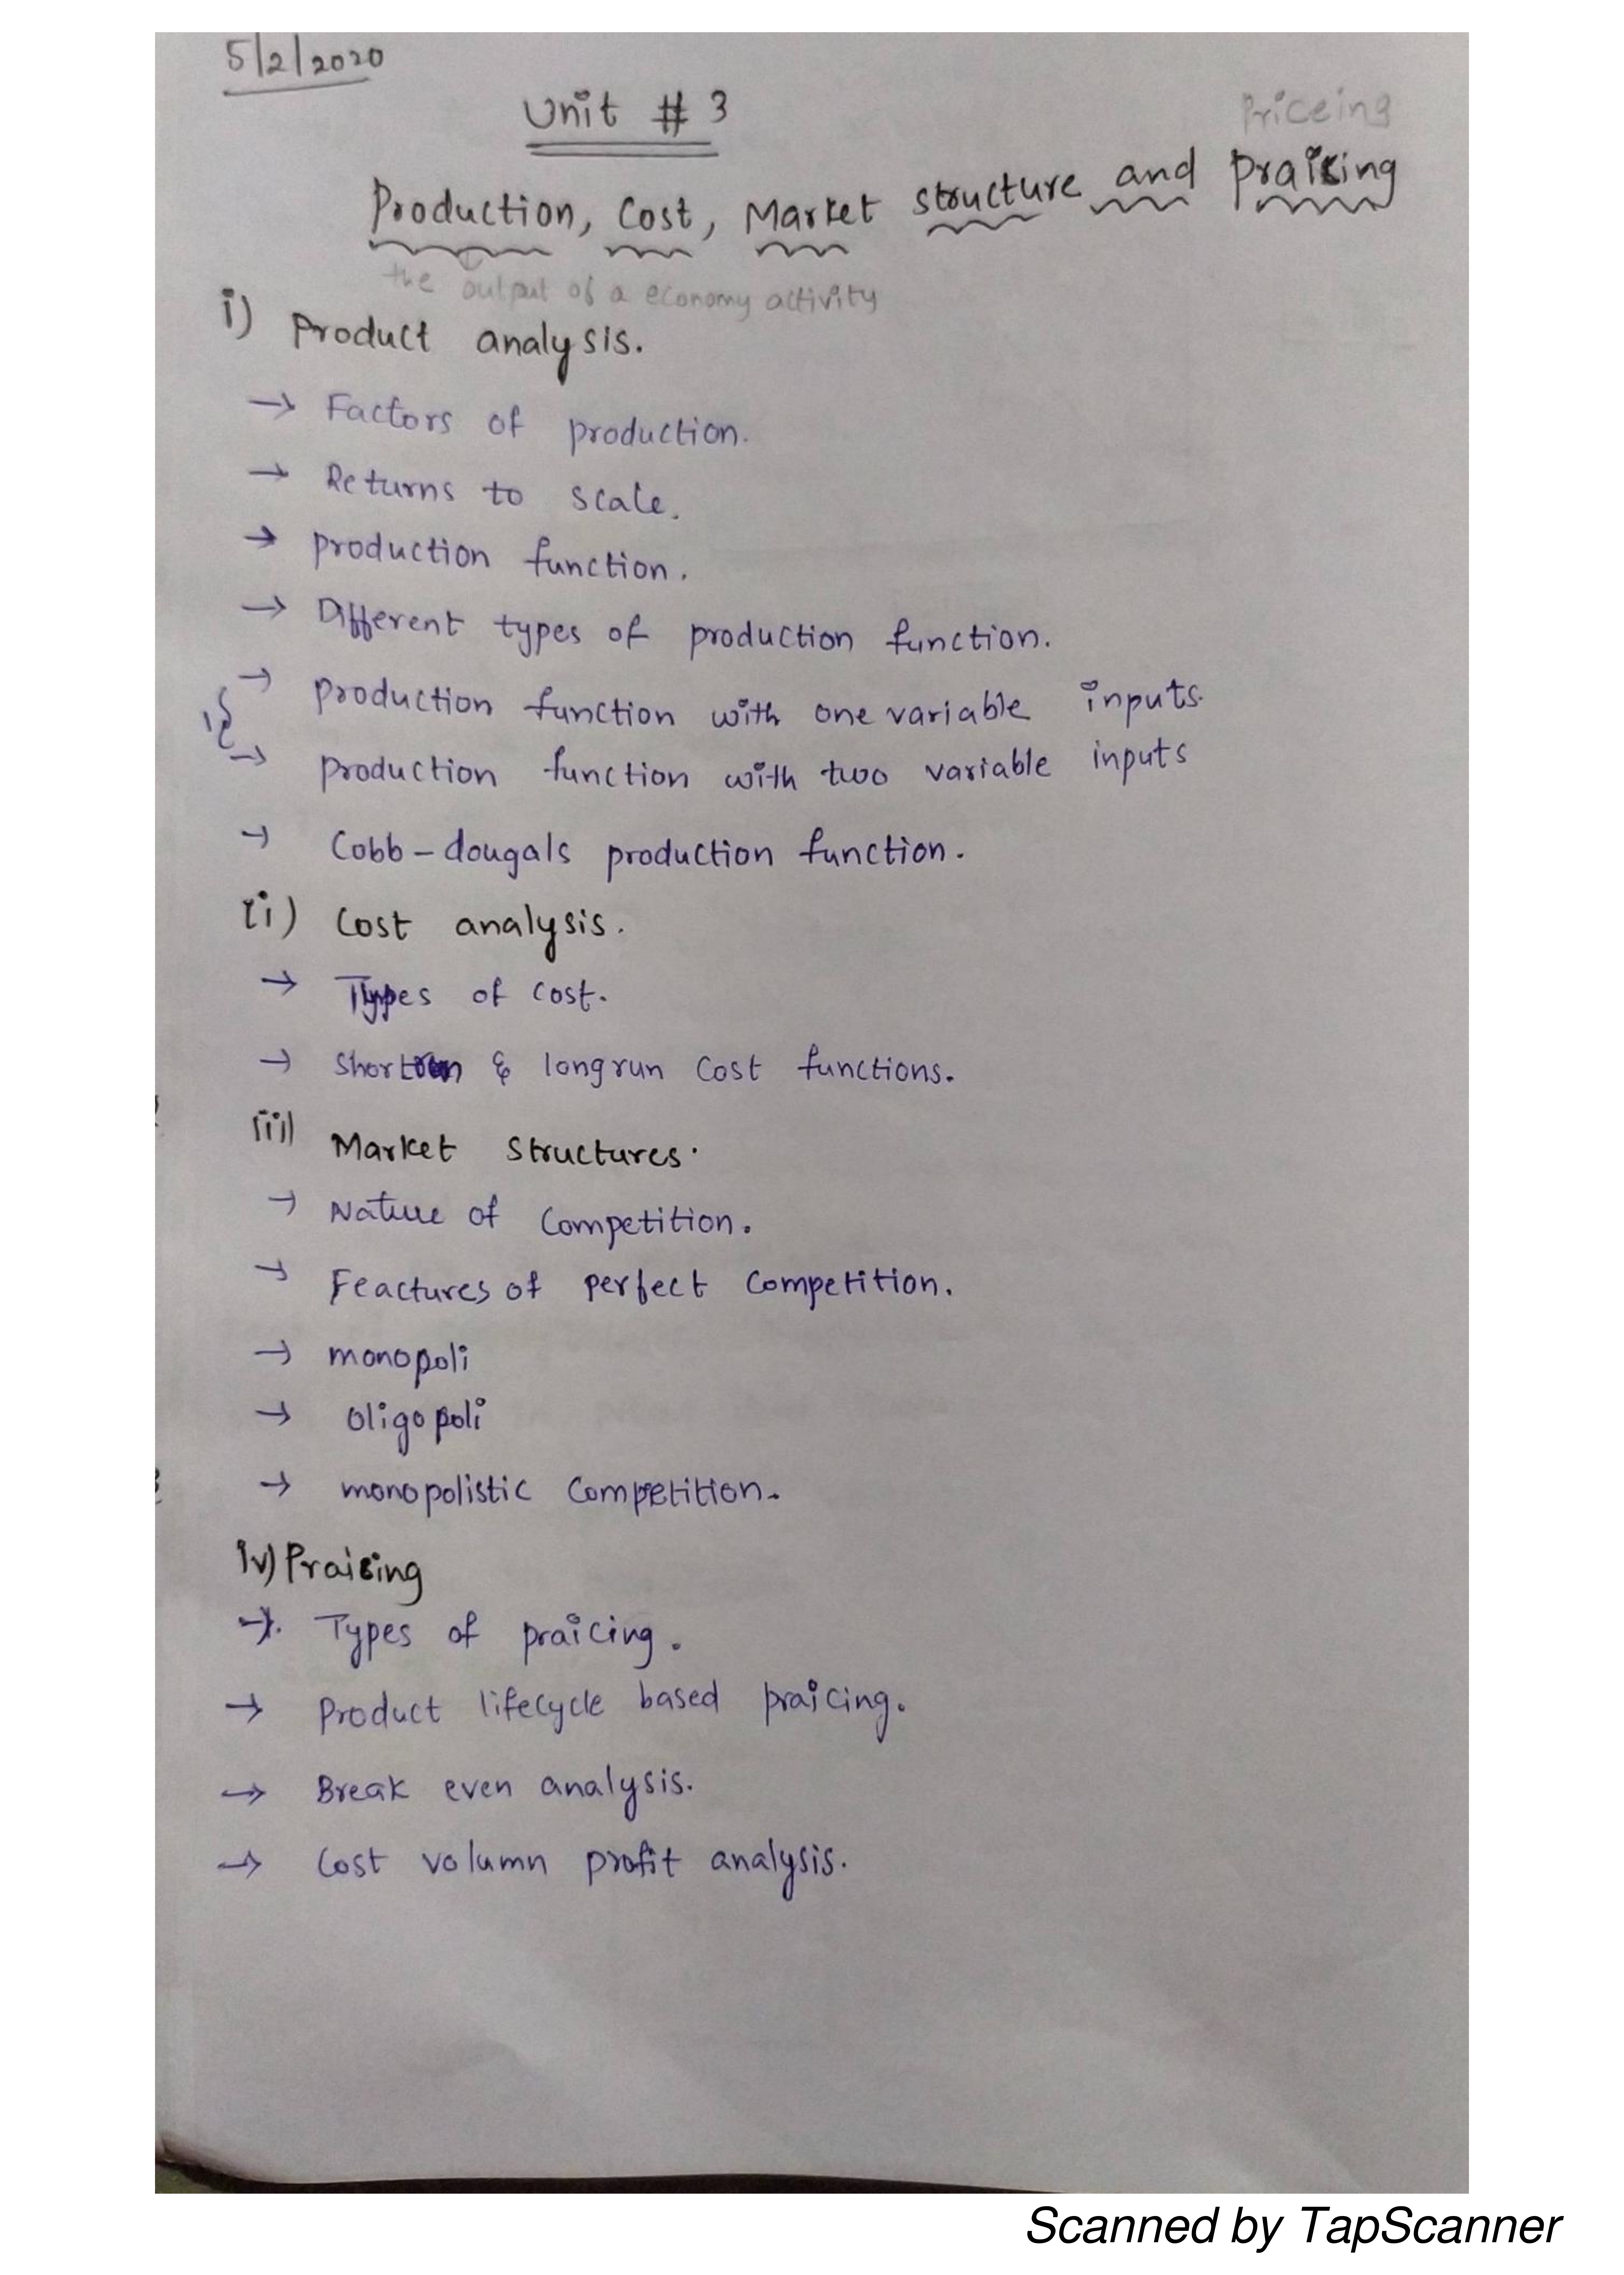 5/2/2020
Unit # 3
Priceing
Production, Cost, Market structure and Praicing
the output of a economy activity
i) Product analysis.
→ Factors of production.
→ Returns to scale.
→ production function.
→ Different types of production function.
→ production function with one variable inputs.
→ production function with two variable inputs
→ Cobb-dougals production function.
ii) Cost analysis.
→ Types of cost.
→ Shortrun & longrun Cost functions.
iii) Market Structures.
→ Nature of Competition.
→ Feactures of perfect Competition.
→ monopoli
→ oligopoli
→ monopolistic Competition.
iv) Praicing
→ Types of praicing.
→ Product lifecycle based praicing.
→ Break even analysis.
→ Cost volumn profit analysis.
Scanned by TapScanner